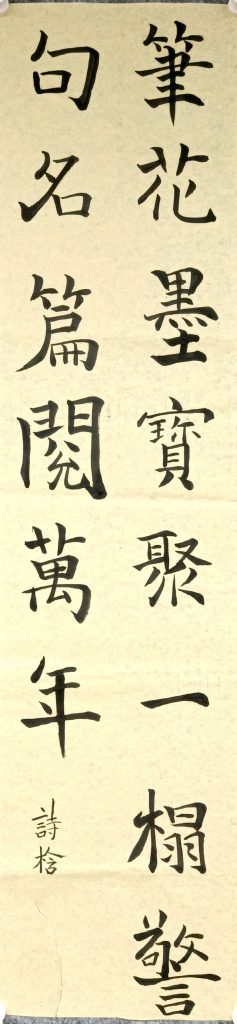 筆花墨寶聚一榻警
句名篇閱萬年
詩捻